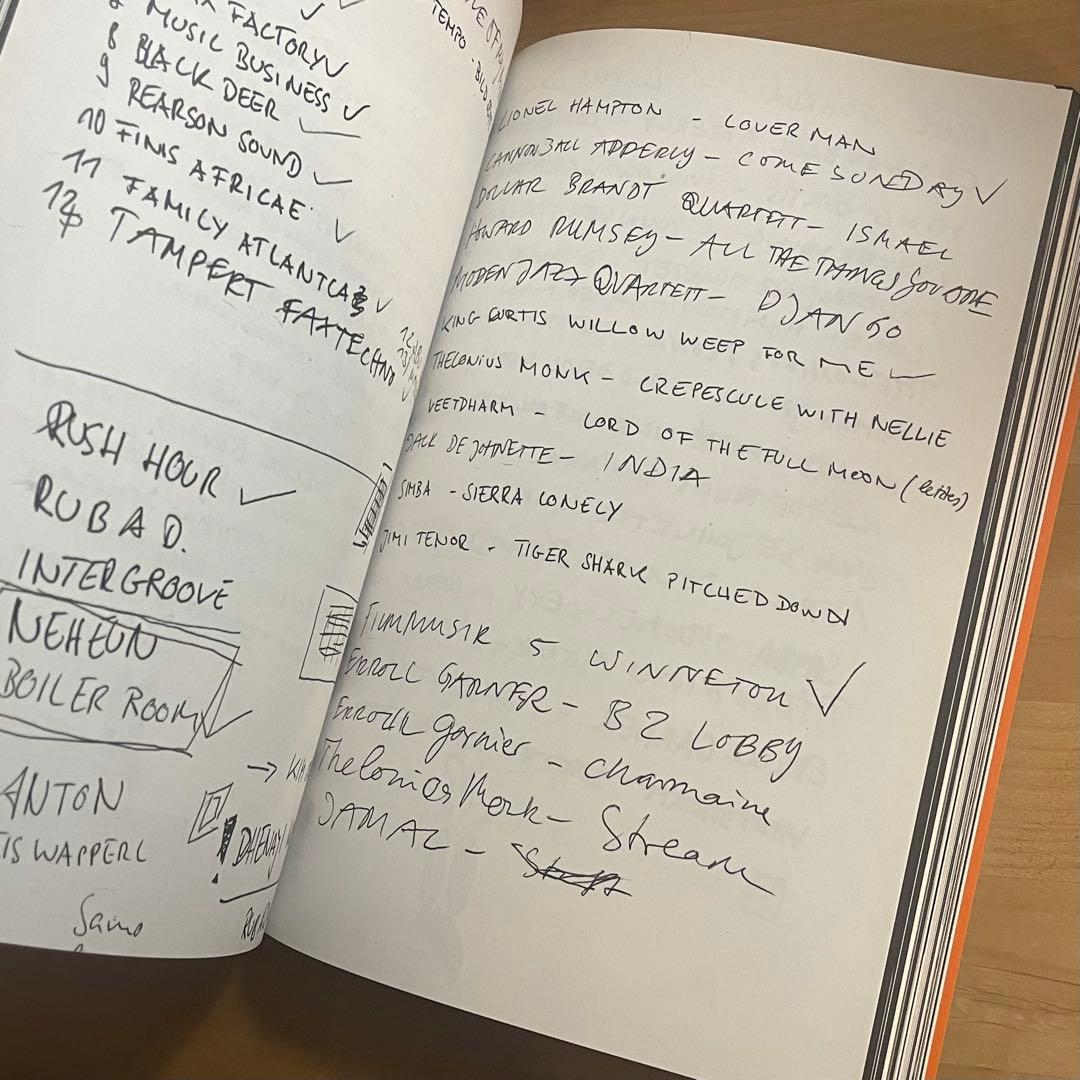 FACTORY
MUSIC BUSINESS
8 BLACK DEER
9 REARSON SOUND
10 FINIS AFRICAE
11 FAMILY ATLANTICA
12 TAMPERT FAXTECHNO
RUSH HOUR
RUB A D.
INTERGROOVE
NEHEUN
BOILER ROOM
ANTON
IS WAPPERL
Samo
TEMPO
LIONEL HAMPTON - LOVER MAN
CANNONBALL ADDERLY - COME SUNDAY
DOLLAR BRANDT QUARTETT - ISMAEL
HOWARD RUMSEY - ALL THE THINGS YOU ARE
MODEN JAZZ QUARTETT - DJANGO
KING CURTIS WILLOW WEEP FOR ME
THELONIUS MONK - CREPESCULE WITH NELLIE
VEETDHARM - LORD OF THE FULL MOON
JACK DE JOHNETTE - INDIA
SIMBA - SIERRA LONELY
JIMI TENOR - TIGER SHARK PITCHED DOWN
FILMMUSIK 5 WINNETOU
ERROLL GARNER - BZ LOBBY
ERROLL Garnier - Charmaine
Thelonios Monk - Stream
JAMAL -